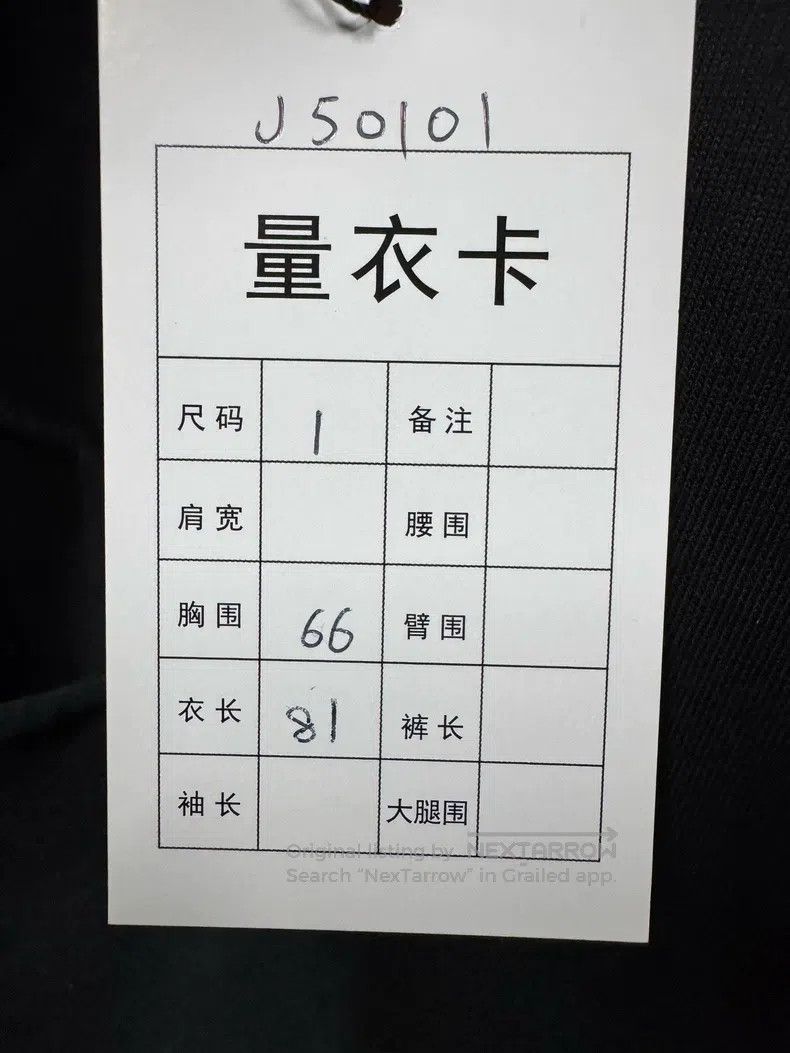 J50101
量衣卡
尺码 1 备注
肩宽 腰围
胸围 66 臂围
衣长 81 裤长
袖长 大腿围
Original listing by NEXTARROW
Search “NexTarrow” in Grailed app.